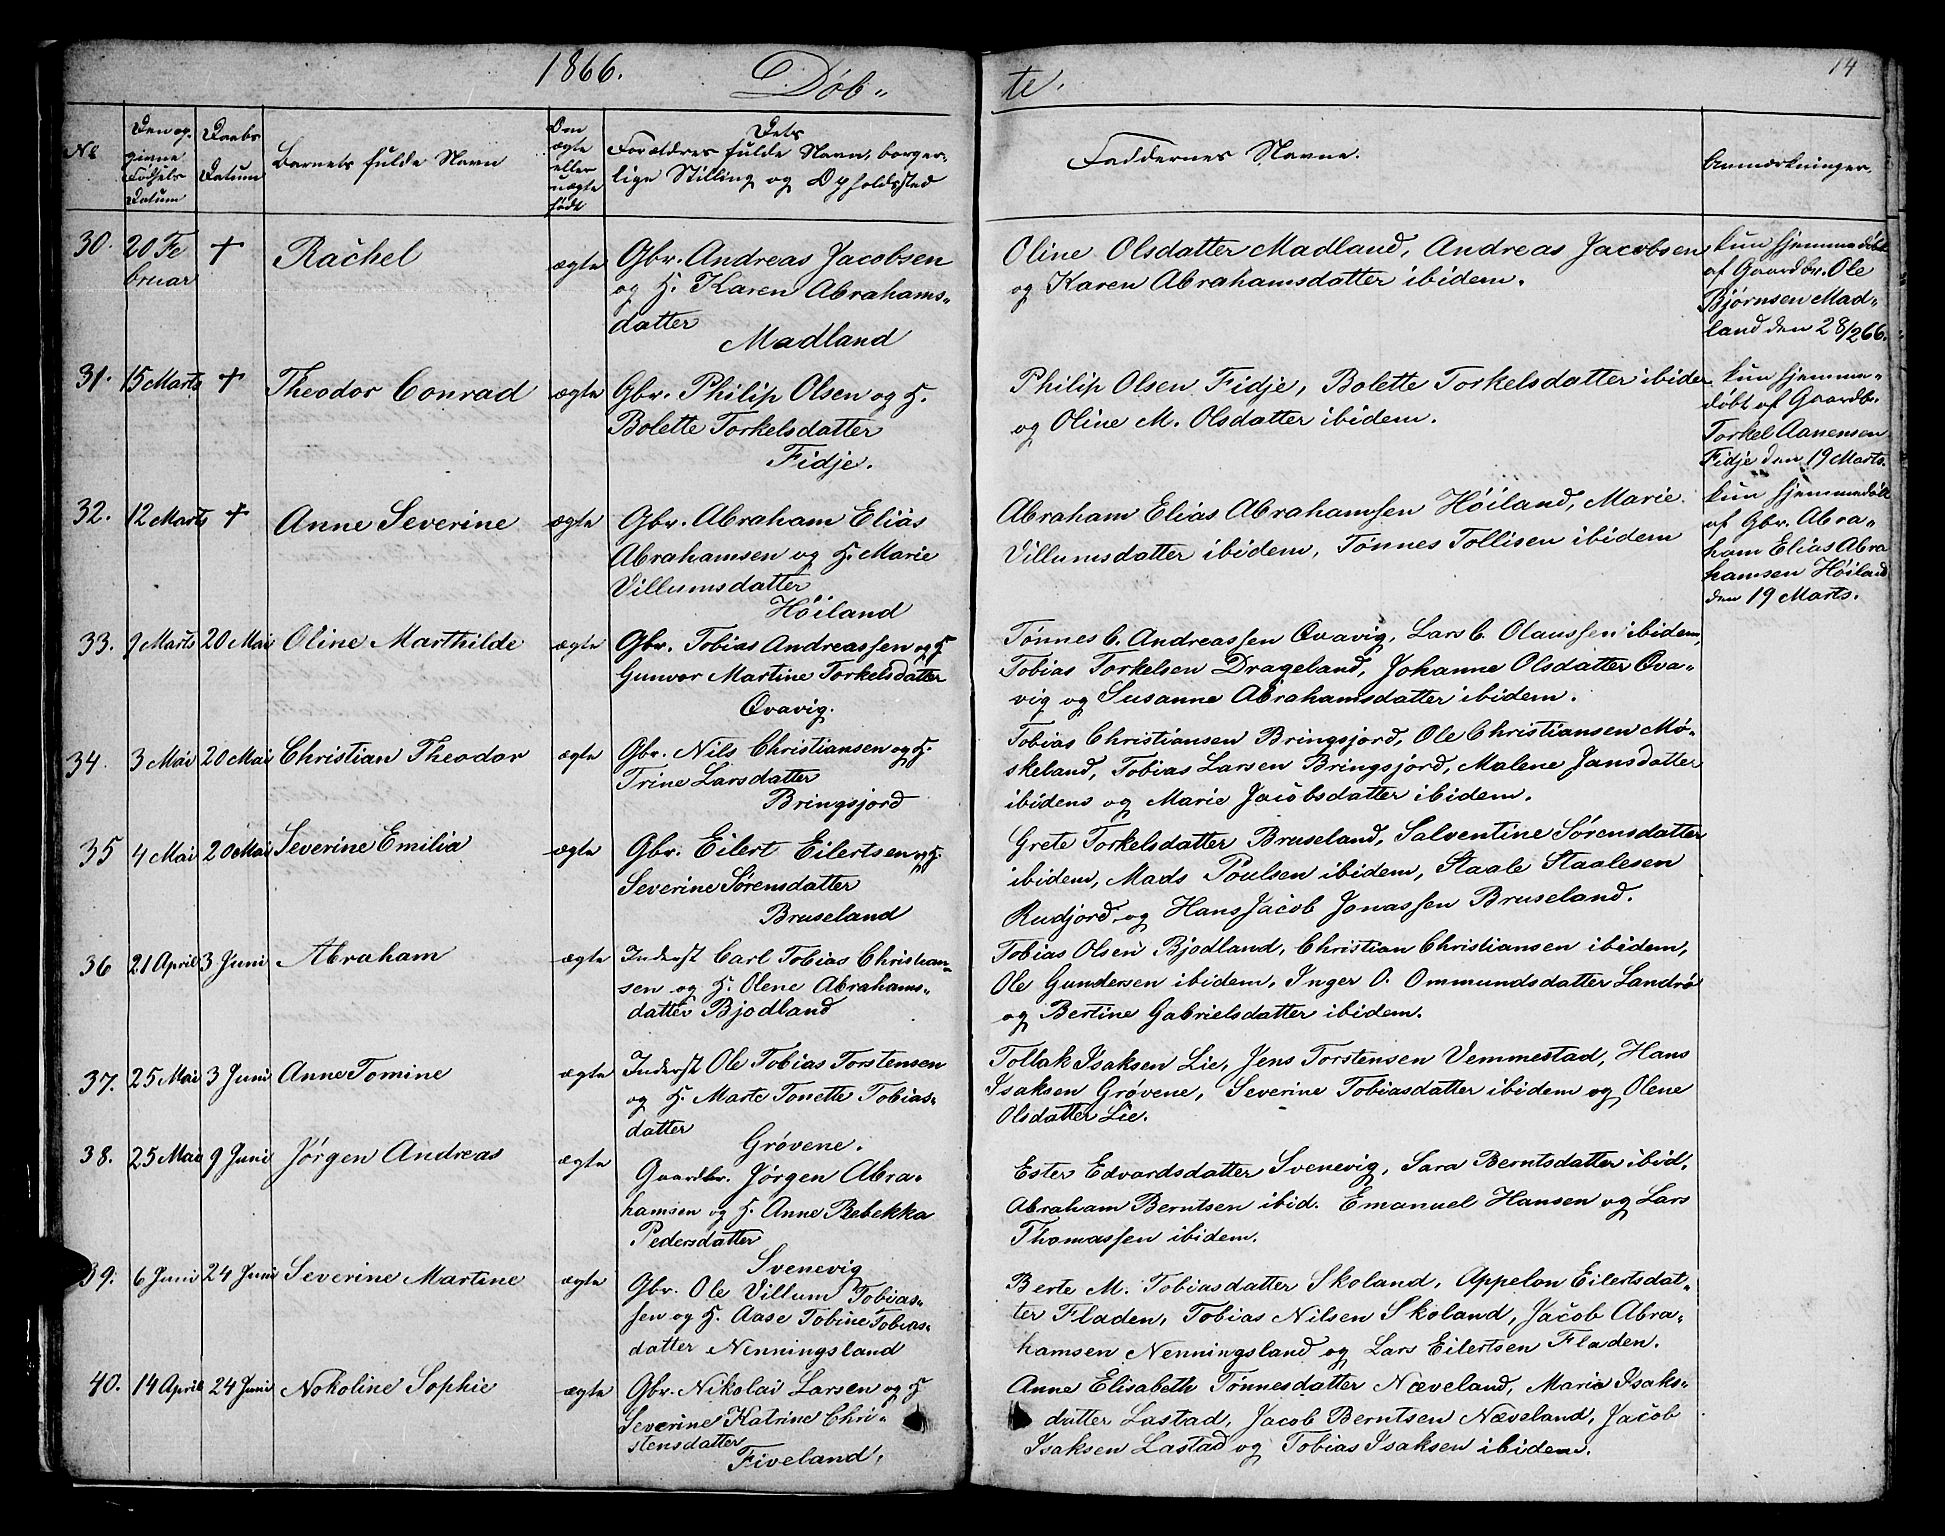 1866. Døb-
te.
14
No
Den op-
givne
Fødsels
Datum
Daabs
Datum
Barnets fulde Navn
Om
ægte
eller
uægte
født
Dets
Forældres fulde Navn, borger-
lige Stilling og Opholdssted
Faddernes Navne.
Anmærkninger.
30. 20 Fe
bruar
+
Rachel
ægte
Gbr. Andreas Jacobsen
og H. Karen Abrahams-
datter
Madland
Oline Olsdatter Madland, Andreas Jacobsen
og Karen Abrahamsdatter ibidem.
kun hjemmedøbt
af Gaardbr. Ole
Bjørnsen Mad-
land den 28/2 66.
31. 15 Marts
+
Theodor Conrad
ægte
Gbr. Philip Olsen og H.
Bolette Torkelsdatter
Fidje.
Philip Olsen Fidje, Bolette Torkelsdatter ibidem
og Oline M. Olsdatter ibidem.
kun hjemme-
døbt af Gaardb.
Torkel Aanensen
Fidje den 19 Marts.
32. 12 Marts
+
Anne Severine
ægte
Gbr. Abraham Elias
Abrahamsen og H. Marie
Villumsdatter
Høiland
Abraham Elias Abrahamsen Høiland, Marie
Villumsdatter ibidem, Tønnes Tollisen ibidem
kun hjemmedøbt
af Gbr. Abra-
ham Elias Abra
hamsen Høiland
den 19 Marts.
33. 9 Marts 20 Mai Oline Marthilde
ægte
Gbr. Tobias Andreassen og H
Gunvor Martine Torkelsdatter
Qvavig.
Tønnes C. Andreassen Qvavig, Lars C. Olaussen ibidem,
Tobias Torkelsen Drageland, Johanne Olsdatter Qva-
vig og Susanne Abrahamsdatter ibidem.
34. 3 Mai 20 Mai Christian Theodor
ægte
Gbr. Nils Christiansen og H.
Trine Larsdatter
Bringsjord
Tobias Christiansen Bringsjord, Ole Christiansen Mø-
skeland, Tobias Larsen Bringsjord, Malene Jansdatter
ibidem og Marie Jacobsdatter ibidem.
35 4 Mai 20 Mai Severine Emilia
ægte
Gbr. Eilert Eilertsen og H.
Severine Sørensdatter
Bruseland
Grete Torkelsdatter Bruseland, Salventine Sørensdatter
ibidem, Mads Poulsen ibidem, Staale Staalesen
Rudjord og Hans Jacob Jonassen Bruseland.
36 21 April 3 Juni Abraham
ægte
Inderst Carl Tobias Christian-
sen og H. Olene Abrahams-
datter Bjodland
Tobias Olsen Bjodland, Christian Christiansen ibidem,
Ole Gundersen ibidem, Inger O. Ommundsdatter Landrø
og Bertine Gabrielsdatter ibidem.
37. 25 Mai 3 Juni Anne Tomine
ægte
Inderst Ole Tobias Torstensen
og H. Marte Tonette Tobias-
datter
Grøvene.
Tollak Isaksen Lie, Jens Torstensen Vemmestad, Hans
Isaksen Grøvene, Severine Tobiasdatter ibidem og Olene
Olsdatter Lie.
38. 25 Mai 9 Juni Jørgen Andreas
ægte
Gaardbr. Jørgen Abra-
hamsen og H. Anne Rebekka
Pedersdatter
Svenevig
Ester Edvardsdatter Svenevig, Sara Berntsdatter ibid,
Abraham Berntsen ibid. Emanuel Hansen og Lars
Thomassen ibidem.
39. 6 Juni 24 Juni Severine Martine
ægte
Gbr. Ole Villum Tobias-
sen og H. Aase Tobine Tobias-
datter Nenningsland
Berte M. Tobiasdatter Skoland, Appelon Eilertsdat-
ter Fladen, Tobias Nilsen Skoland, Jacob Abra-
hamsen Nenningsland og Lars Eilertsen Fladen.
40. 14 April 24 Juni Nokoline Sophie
ægte
Gbr. Nikolai Larsen og H
Severine Katrine Chri-
stensdatter
Fiveland.
Anne Elisabeth Tønnesdatter Næveland, Maria Isaks-
datter Lastad, Jacob Berntsen Næveland, Jacob
Isaksen Lastad og Tobias Isaksen ibidem.